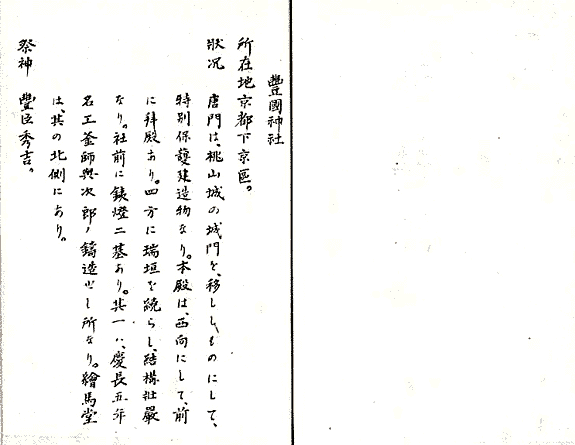 豐國神社
所在地 京都下京區。
狀況 唐門は、桃山城の城門を、移ししものにして、
特別保護建造物なり。本殿は、西向にして、前
に拜殿あり。四方に瑞垣を繞らし、結構壯嚴
なり。社前に鐵燈二基あり。其一ハ、慶長五年
名工釜師與次郎ノ鑄造せし所なり。繪馬堂
は、其の北側にあり。
祭神 豐臣秀吉。